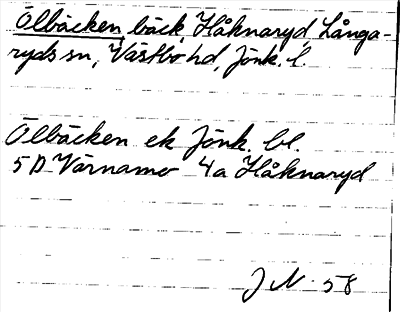 Ölbäcken, bäck, Håknaryd, Långa-
ryds sn, Västbo hd, Jönk. l.
Ölbäcken ek Jönk. bl.
5D Värnamo 4a Håknaryd
J N. 58